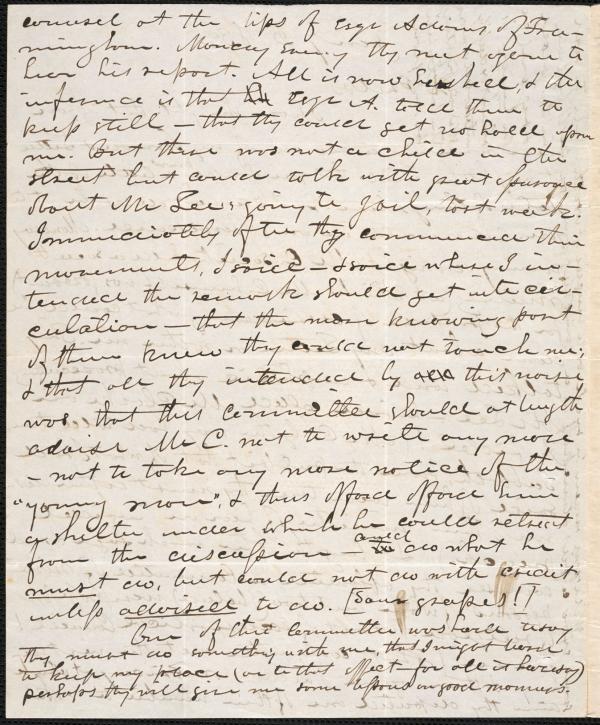 counsel at the lips of Esqr Adams of Fra-
mingham. Monday Eve.g thy met again to
hear his report. All is now hushed, & the
inference is that Esqr A. told them to
keep still – that thy could get no hold upon
me. But there was not a child in the
street but could talk with great assurance
about Mr Lee's going to jail, last week.
Immediately after thy commenced their
movements, I said – & said where I in-
tended the remark should get into cir-
culation – that the more knowing part
of them knew thy could not touch me;
& that all thy intended by all this noise
was that this committee should at length
advise Mr C. not to write any more
– not to take any more notice of the
"young man", & thus afford afford him
a shelter under which he could retreat
from the discussion – and do what he
must do, but could not do with credit
unless advised to do. [Sour grapes!!]
One of this Committee was heard to say
thy must do something with me, that I might learn
to keep my place (or to that effect for all ithe say)
perhaps thy will give me some lessons in good manners.